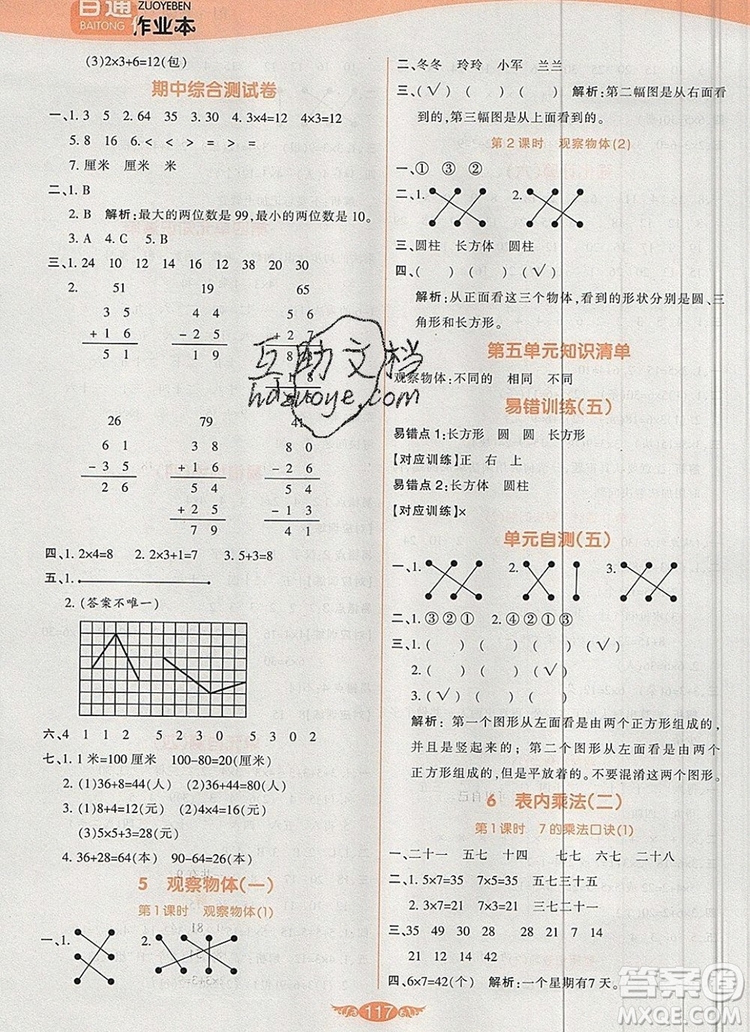 百通
ZUOYEBEN
BAITONG
作业本
(3)2×3+6=12(包)
期中综合测试卷
一、1.3 5 2.64 35 3.30 4.3×4=12 4×3=12
5.8 8 16 6.< < > = > =
7.厘米 厘米 米 厘米
二、1.B
2.B 解析:最大的两位数是99,最小的两位数是10。
3.A 4.C 5.B
三、1.24 10 12 14 12 18 38 12 30
2. 51 19
3 5 4 4
+ 1 6 - 2 5
5 1 1 9 8 1
1 8
26 79 41
6 1 3 8 8 0
- 3 5 + 1 6 - 2 6
2 6 5 4 5 4
+ 2 5 - 1 3
7 9 4 1
四、1.2×4=8 2.2×3+1=7 3.5+3=8
五、1.
2.(答案不唯一)
六、4 2 0 2 1 5 1 2 5 3 0 2
七、1.1米=100厘米 100-80=20(厘米)
2.(1)36+8=44(人) (2)44+36=80(人)
3.(1)4×2=8(元) (2)18+6=24(元)
(3)5×5+3=28(元)
4.36+28=64(本) 90-64=26(本)
5 观察物体(一)
第1课时 观察物体(1)
一、1. 2.
二、冬冬 玲玲 小军 兰兰
三、( ) (√) ( ) 解析:第二幅图是从右面看
到的,第三幅图是从上面看到的。
第2课时 观察物体(2)
一、① ③ ②
二、1. 2.
三、圆柱 长方体 圆柱
四、( ) ( ) (√)
解析:从正面看这三个物体,看到的形状分别是圆、三
角形和长方形。
第五单元知识清单
观察物体:不同的 相同 不同
易错训练(五)
易错点1:长方形 圆 圆 长方形
【对应训练】正 右 上
易错点2:长方体 圆柱
【对应训练】×
单元自测(五)
一、1. 2. 3.
二、1.③②① 2.④②①③
三、1.( ) ( ) ( ) (√)
2.( ) ( ) (√) ( )
3.(√) ( ) ( )
解析:第一个图形从左面看是由两个正方形组成的,
并且是竖着的。第二个图形从左面看也是由两个
正方形组成的,但是平放着的。不要混淆这两个图形。
6 表内乘法(二)
第1课时 7的乘法口诀(1)
一、二十一 五七 七十四 六七 七七 二十八
二、1.5×7=35 7×5=35 五七三十五
2.3×7=21 7×3=21 三七二十一
三、35 49 30 28 7 21 14
21 12 15 42
四、6×7=42(个) 解析:一个星期有7天。
117
互助文档
hdzuoye.com
答案圈
MXQE.COM